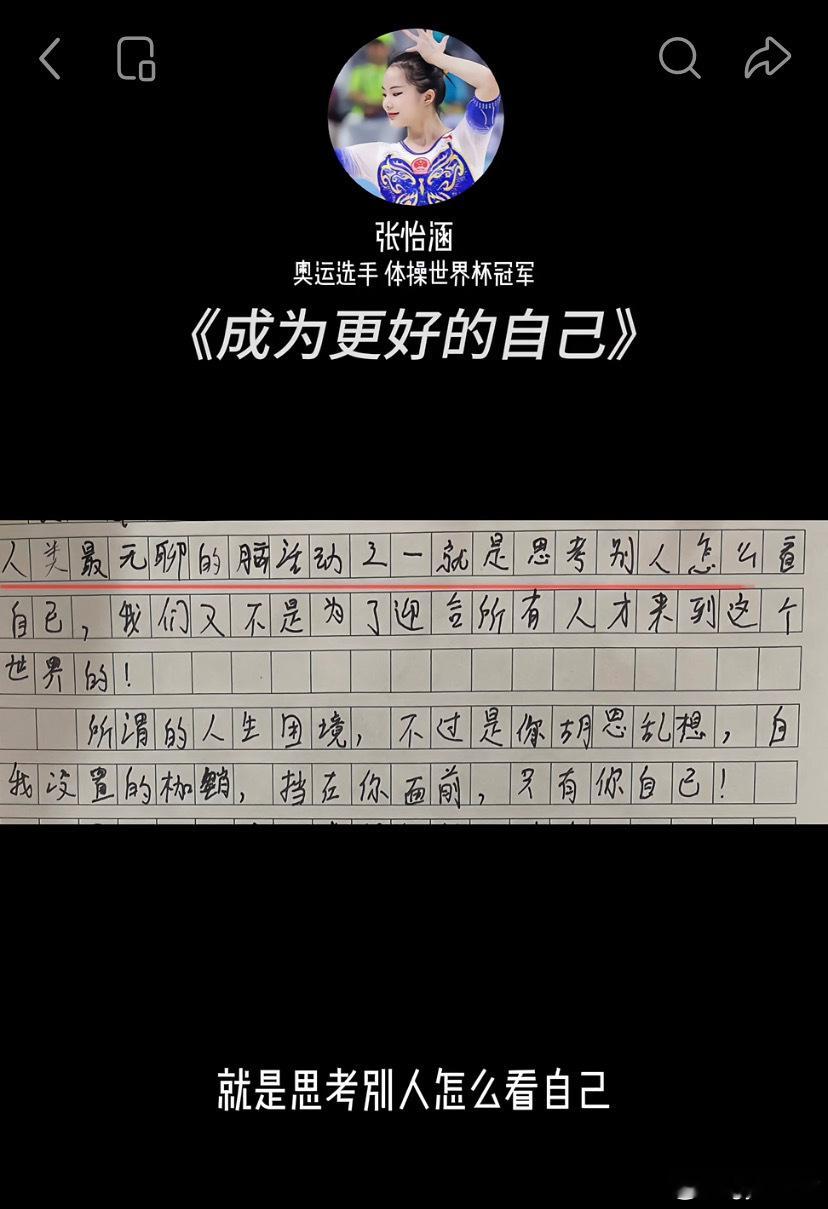 张怡涵
奥运选手 体操世界杯冠军
《成为更好的自己》
人类最无聊的脑活动之一就是思考别人怎么看
自己，我们又不是为了迎合所有人才来到这个
世界的！
所谓的人生困境，不过是你胡思乱想，自
我设置的枷锁，挡在你面前，只有你自己！
就是思考别人怎么看自己